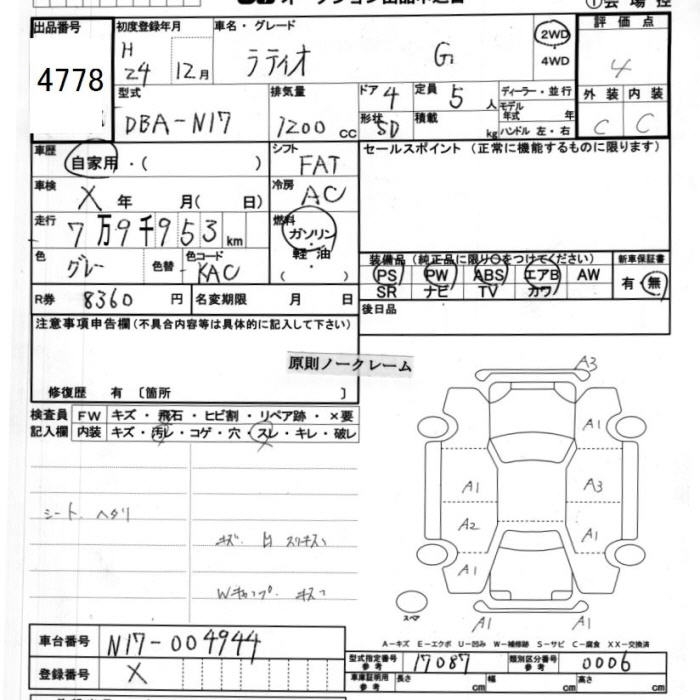 出品番号
4778
初度登録年月
H
24 12月
車名・グレード
ラティオ G
2WD
4WD
評価点
4
外装 内装
C C
型式
DBA-N17
排気量
1200 cc
ドア 4
定員 5 人
形状 SD
積載 kg
ディーラー・並行
モデル年式 年
ハンドル 左・右
車歴
自家用・( )
シフト
FAT
セールスポイント(正常に機能するものに限ります)
車検
X 年 月( 日)
冷房
AC
走行
7万9千953 km
燃料
ガソリン
・
軽油
・
( )
色
グレー
色替
色コード
KAC
装備品(純正品に限り○をつけてください)
PS PW ABS エアB AW
SR ナビ TV カワ
新車保証書
有・無
R券 8360 円
名変期限 月 日
後日品
注意事項申告欄(不具合内容等は具体的に記入して下さい)
原則ノークレーム
修復歴 有〔箇所 〕
検査員記入欄
FW キズ・飛石・ヒビ割・リペア跡・×要
内装 キズ・汚レ・コゲ・穴・スレ・キレ・破レ
シート ヘタリ
Wキャップ キズ
A3
A1 A1
A1 A3
A2 A1
A1 A1
A1
スペア
A-キズ E-エクボ U-凹み W-補修跡 S-サビ C-腐食 XX-交換済
車台番号 N17-004944
登録番号 X
型式指定番号 参考 17087
類別区分番号 参考 0006
車庫証明用 参考 長さ cm 幅 cm 高さ cm